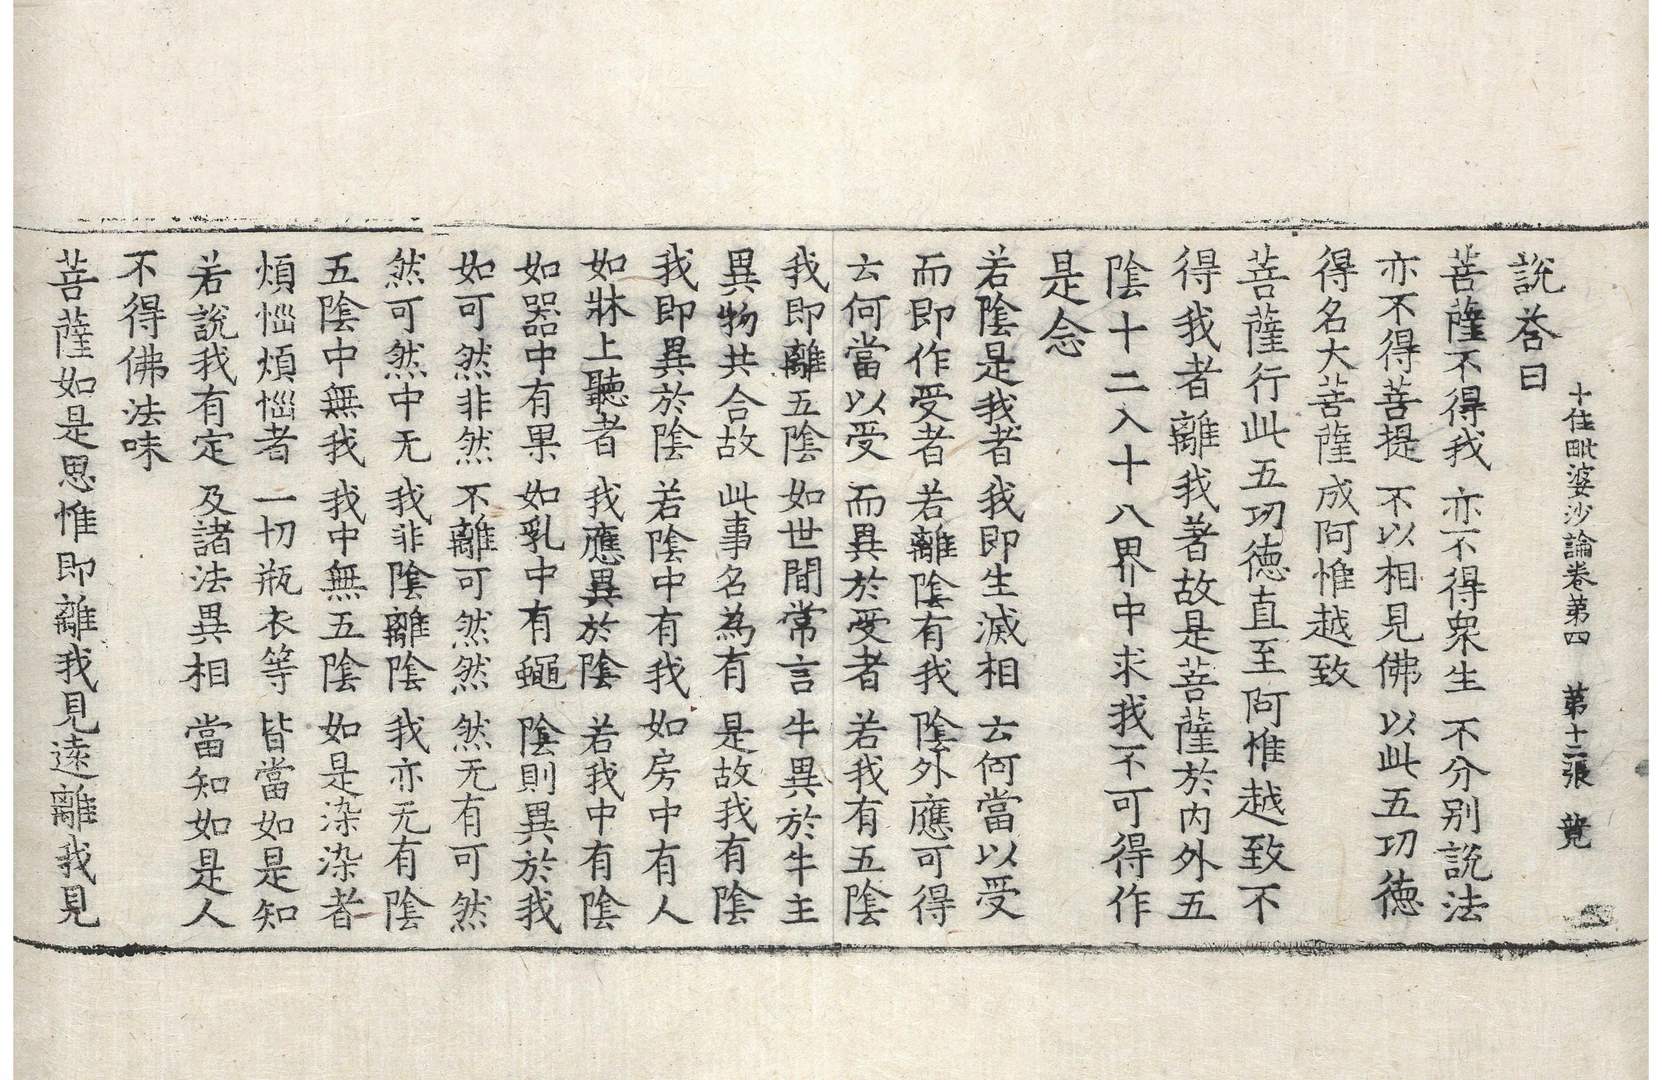 十住毗婆沙論卷第四 第十二張 覽
說荅曰
菩薩不得我 亦不得衆生 不分別說法
亦不得菩提 不以相見佛 以此五功德
得名大菩薩成阿惟越致
菩薩行此五功德直至阿惟越致不
得我者離我著故是菩薩於內外五
陰十二入十八界中求我不可得作
是念
若陰是我者 我即生滅相 云何當以受
而即作受者 若離陰有我 陰外應可得
云何當以受 而異於受者 若我有五陰
我即離五陰 如世間常言 牛異於牛主
異物共合故 此事名為有 是故我有陰
我即異於陰 若陰中有我 如房中有人
如牀上聽者 我應異於陰 若我中有陰
如器中有果 如乳中有蠅 陰則異於我
如可然非然 不離可然然 然无有可然
然可然中无 我非陰離陰 我亦无有陰
五陰中無我 我中無五陰 如是染染者
煩惱煩惱者 一切瓶衣等 皆當如是知
若說我有定 及諸法異相 當知如是人
不得佛法味
菩薩如是思惟即離我見遠離我見